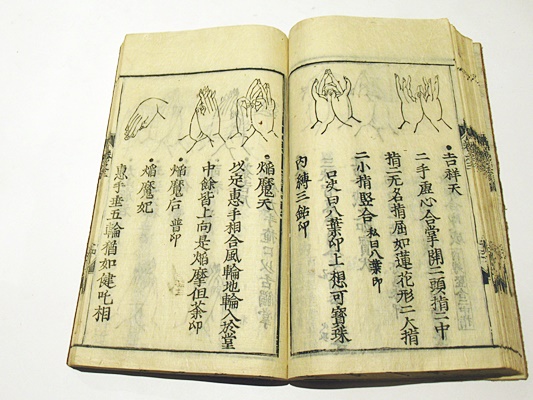 吉祥天
二手虚心合掌開二頭指二中
指二无名指屈如蓮花形二大指
二小指竪合 私曰八葉印
三口次曰八葉印上想可寶珠
内縛三鈷印
焔魔天
以定惠手相合風輪地輪入於掌
中餘皆上向是焔摩但荼印
焔魔后 普印
焔魔妃
惠手垂五輪猶如健吒相